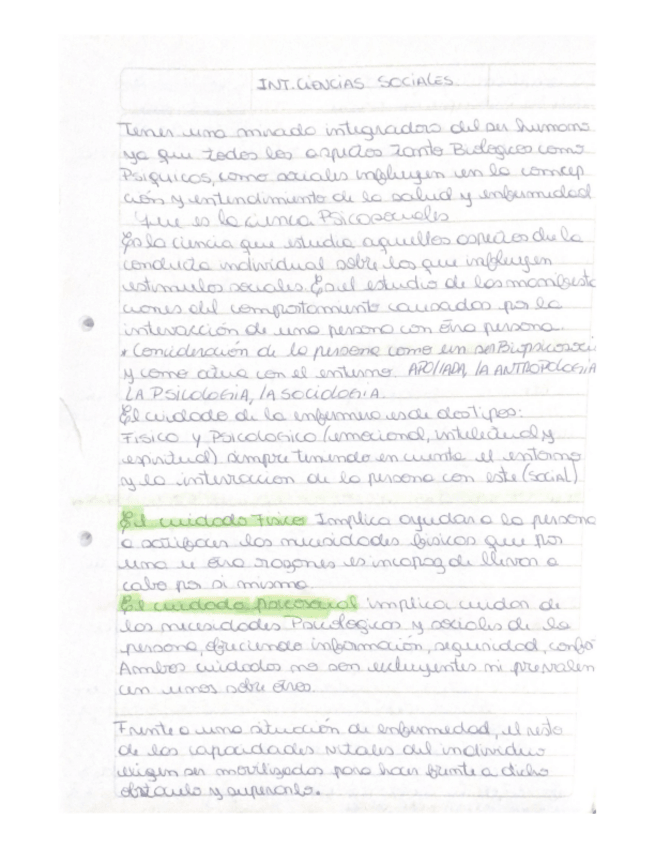 INT. CIENCIAS SOCIALES
Tener una mirada integradora del ser humano
ya que todos los aspectos tanto Biologicos como
Psiquicos, como sociales influyen en la concep
ción y entendimiento de la salud y enfermedad
Que es la ciencia Psicosociales
Es la ciencia que estudia aquellos aspectos de la
conducta individual sobre los que influyen
estimulos sociales. Es el estudio de las manifesta
ciones del comportamiento causados por la
interacción de una persona con otra persona.
* Consideración de la persona como un ser Biopsicosoci
y como actua con el entorno. APOLLADA, LA ANTROPOLOGIA
LA PSICOLOGIA, LA SOCIOLOGIA.
El cuidado de la enfermera es de dos tipos:
Fisico y Psicologico (emocional, intelectual y
espiritual) siempre teniendo en cuenta el entorno
y la interraccion de la persona con este (social)
El cuidado Fisico Implica ayudar a la persona
a satisfacer las necesidades fisicas que por
una u otra razones es incapaz de llevar a
cabo por si misma.
El cuidado psicosocial implica cuidar de
las necesidades Psicologicas y sociales de la
persona, ofreciendo información, seguridad, confo
Ambos cuidados no son excluyentes ni prevalen
cen unos sobre otros.
Frente a una situación de enfermedad, el resto
de las capacidades vitales del individuo
exigen ser movilizados para hacer frente a dicho
obstaculo y superarlo.